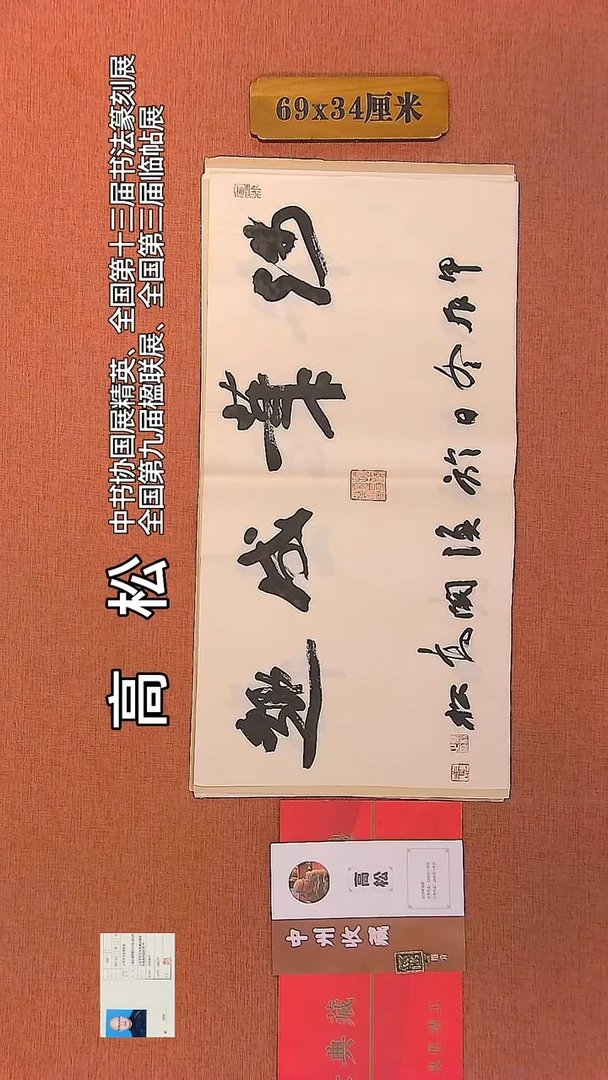 69x34厘米
高 松
中书协国展精英、全国第十三届书法篆刻展
全国第九届楹联展、全国第三届临帖展
涉筆成趣
甲辰冬日於
高松
高松
中州收藏
典藏